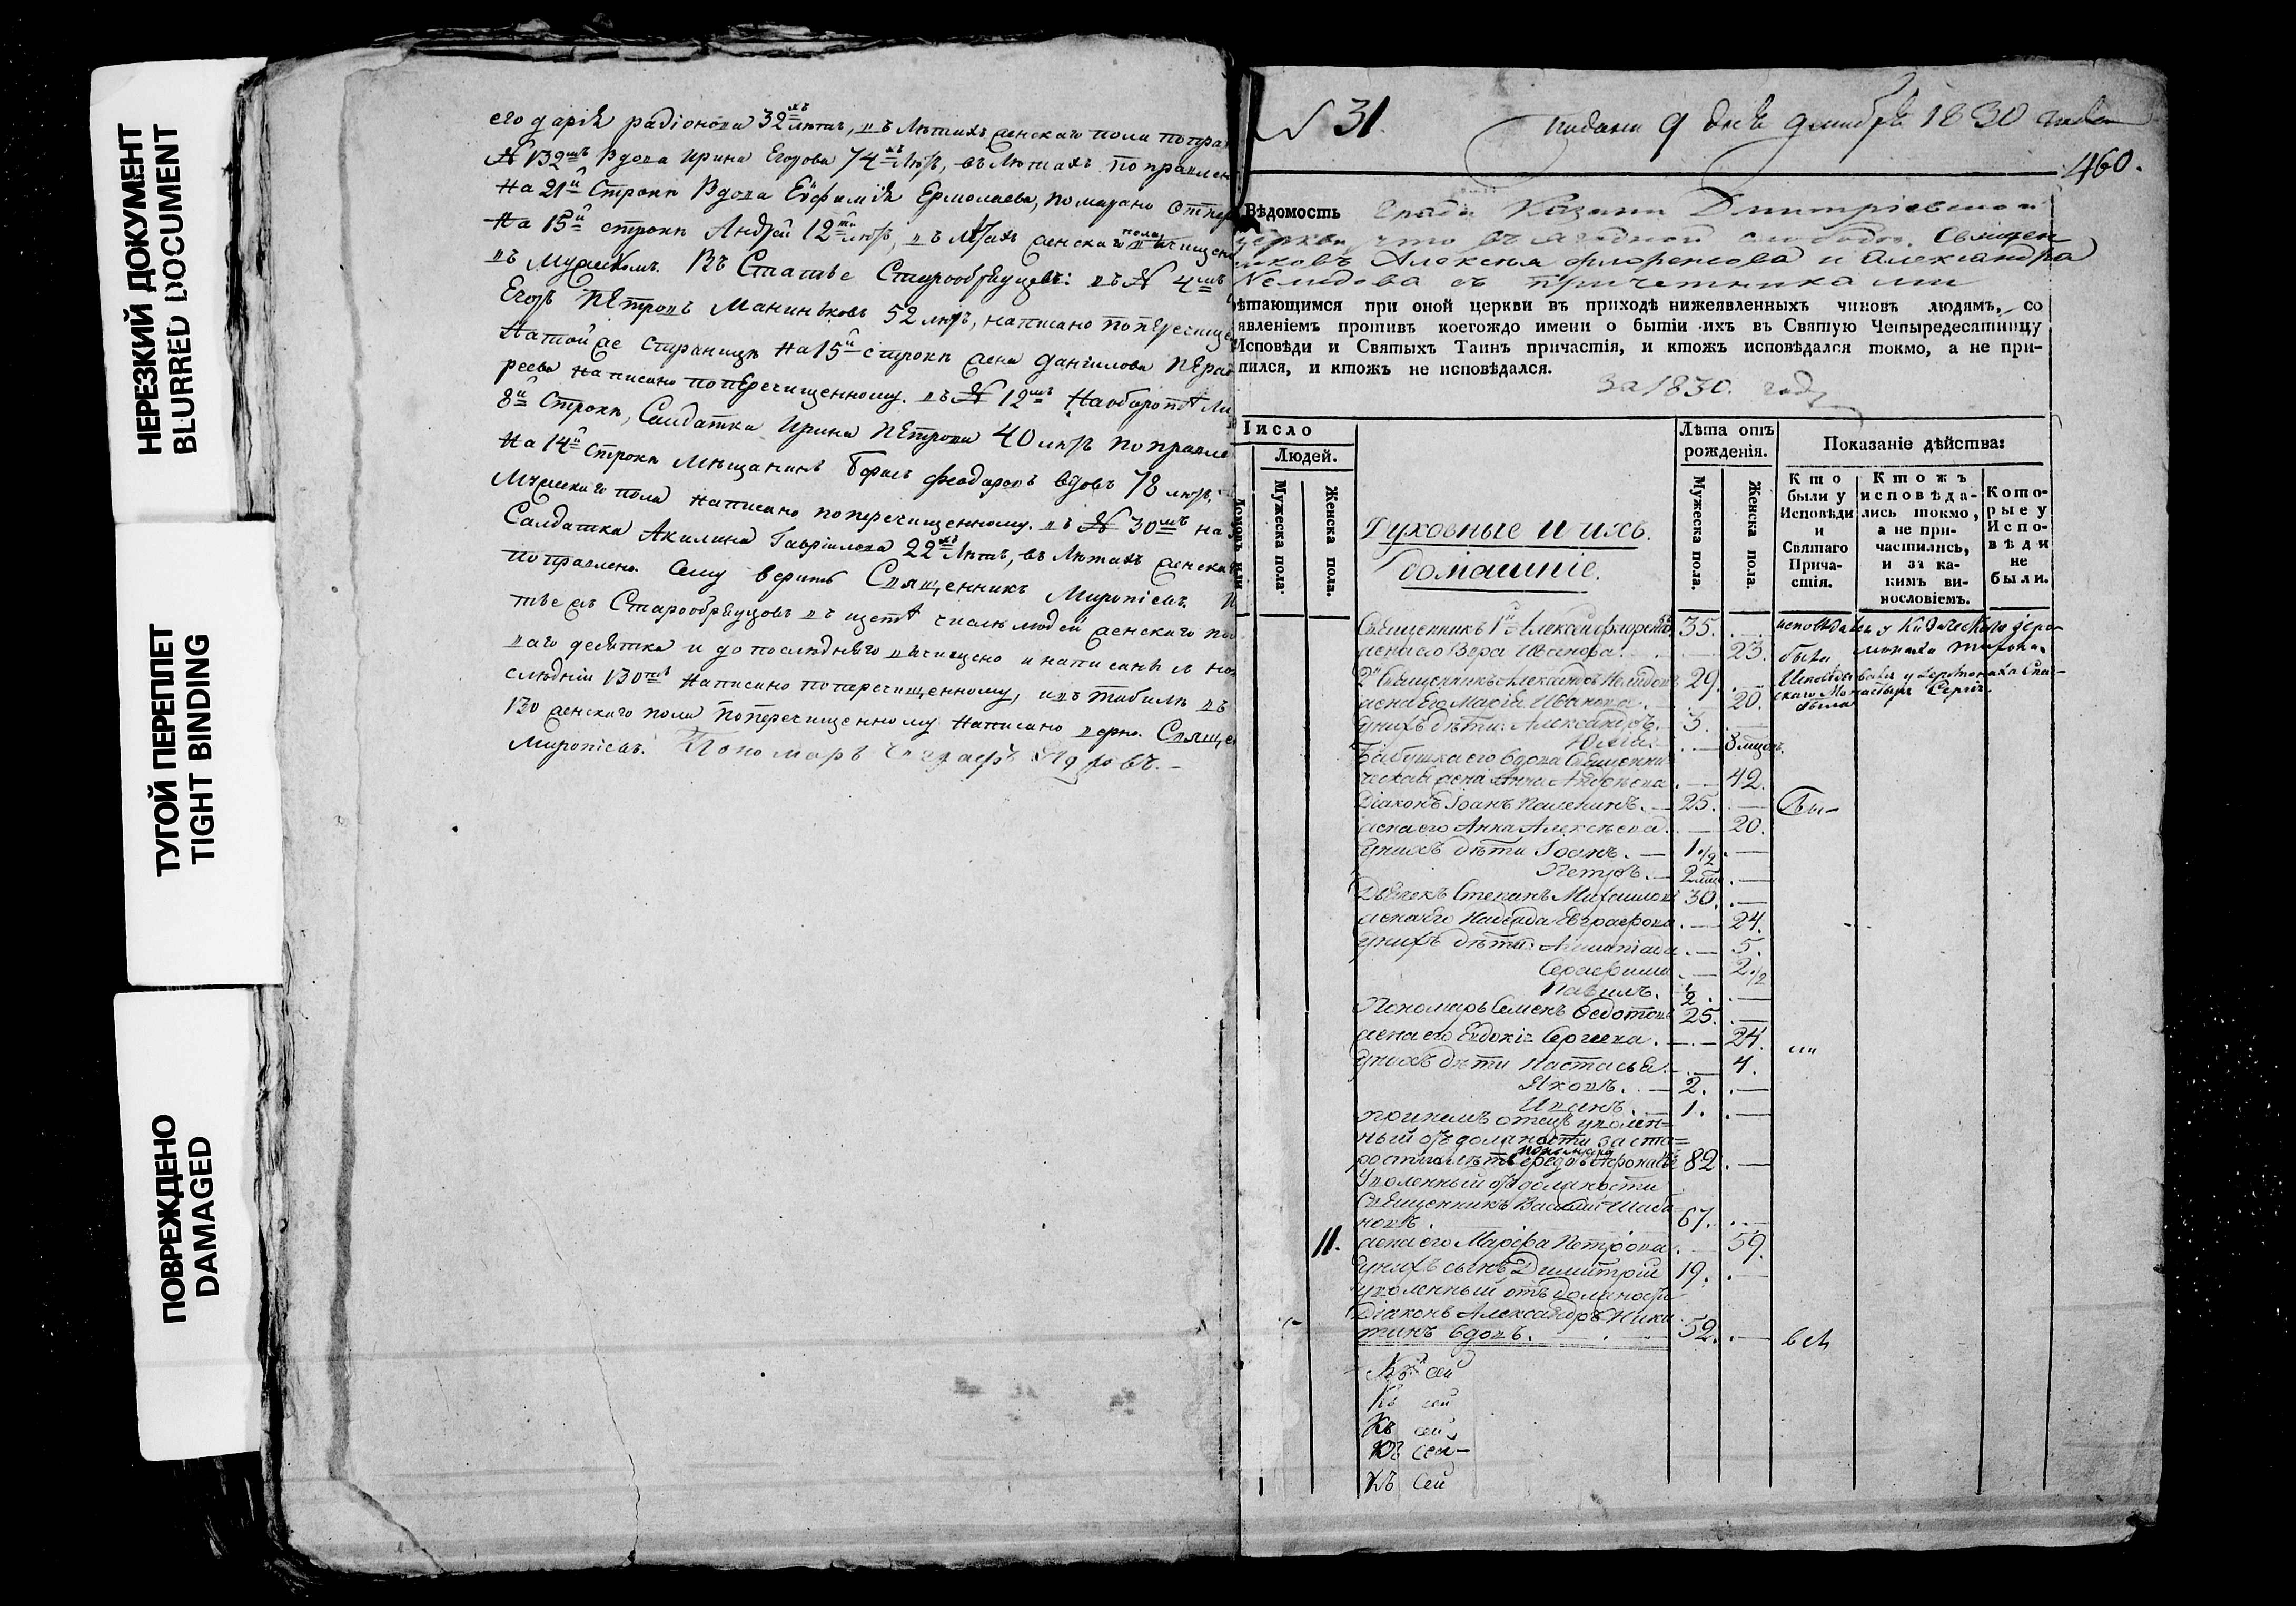 НЕРЕЗКИЙ ДОКУМЕНТ
BLURRED DOCUMENT
ТУГОЙ ПЕРЕПЛЕТ
TIGHT BINDING
ПОВРЕЖДЕНО
DAMAGED
его дарія радіонова 32хъ лѣтъ, въ лѣтахъ женскаго пола попра
№ 132мъ Вдова Ирина Егорова 74хъ лѣтъ, въ лѣтахъ поправлен
На 21й строкѣ Вдова Евфимія Ермолаева, помарано
На 15й строкѣ Андрей 12ти лѣтъ, въ лѣтахъ женскаго пола вычищено
въ мужескомъ. Въ Статье Старообрядцевъ: въ № 4мъ
Егоръ Петровъ Маниньковъ 52 лѣтъ, написано поперечище
На той же странице На 15й строкѣ жена данилова
реева написано поперечищенному. въ № 12мъ На оборотѣ ли
8й Строкѣ, Салдатка Ирина Петрова 40 лѣтъ поправле
На 14й строкѣ мѣщанинъ Борисъ феодоровъ вдовъ 78 лѣтъ,
мужескаго пола написано поперечищенному. въ № 30мъ на
Салдатка Акилина Гавріилова 22хъ лѣтъ, въ лѣтахъ женска
поправлено. Сему веритъ Священникъ Миропіевъ.
тье съ Старообрядцовъ въ щетѣ числѣ людей женскаго по
ваго десятка и до послѣдняго вычищено и написанъ
слѣдній 130тый написано поперечищенному, и въ табилѣ въ
130 женскаго пола поперечищенному написано верно. Свяще
Миропіевъ. Пономарь
№ 31. подана 9 дня декабря 1830 года
460.
Вѣдомость града Казани Дмитріевской
церкви, что въ ягодной слободѣ. Священ
никовъ Алексѣя флоренсова и Александра
Нелидова съ причетниками
ѣтающимся при оной церкви въ приходѣ нижеявленныхъ чиновъ людямъ, со
явленіемъ противъ коегождо имени о бытіи ихъ въ Святую Четыредесятницу
Исповѣди и Святыхъ Таинъ причастія, и ктожъ исповѣдался токмо, а не при-
пился, и ктожъ не исповѣдался.
за 1830. годъ
Число
Людей.
Домовъ или
Мужеска пола.
Женска пола.
Духовные и ихъ
домашніе.
Лѣта отъ рожденія.
Мужеска пола.
Женска пола.
Показаніе дѣйства:
Кто были у Исповѣди и Святаго Причастія.
Ктожъ исповѣдались токмо, а не причастились, и за какимъ винословіемъ.
Которые у Исповѣди не были.
Священникъ 1й Алексѣй флоренсовъ 35. исповѣдався у
жена его Вера Иванова 23. была монаха
2й Священникъ Александръ Нелидовъ 29. Исповѣдовался у Іеромонаха Спас-
жена Его Марія Иванова 20. скаго Монастыря Сергія. была
у нихъ дѣти: Александръ. 3.
Юлія 8 мѣцовъ.
Бабушка его вдова Священни
ческая жена Анна Андреева 42.
Діаконъ Іоанъ 25. бы-
жена его Анна Алексѣева 20.
у нихъ дѣти Іоанъ. 1 1/2
Петръ. 2 мѣс
Дьячекъ Степанъ Михайловъ 30.
жена Его Надежда Евграфова 24.
у нихъ дѣти: 5.
Серафима 2 1/2
Павилъ. 1/2
Пономарь Семенъ Федотовъ 25.
жена его Евдокія Сергеева 24. ли
у нихъ дѣти Настасья 4.
Яковъ. 2.
Иванъ. 1.
при немъ отецъ уволен=
ный отъ должности за ста=
ростію лѣтъ пономарь 82.
Уволенный отъ должности
Священникъ Василій Шаба
новъ. 67.
11. жена его Марѳа Петрова 59.
у нихъ сынъ Димитрій 19.
уволенный отъ должности
Діаконъ Александръ Ники
тинъ вдовъ. 52. всѣ
Къ сей
Къ сей
Къ сей
Къ сей
Къ сей